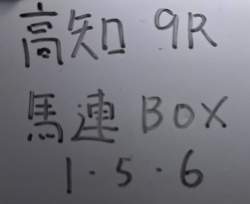 高知 9R
馬連 BOX
1・5・6